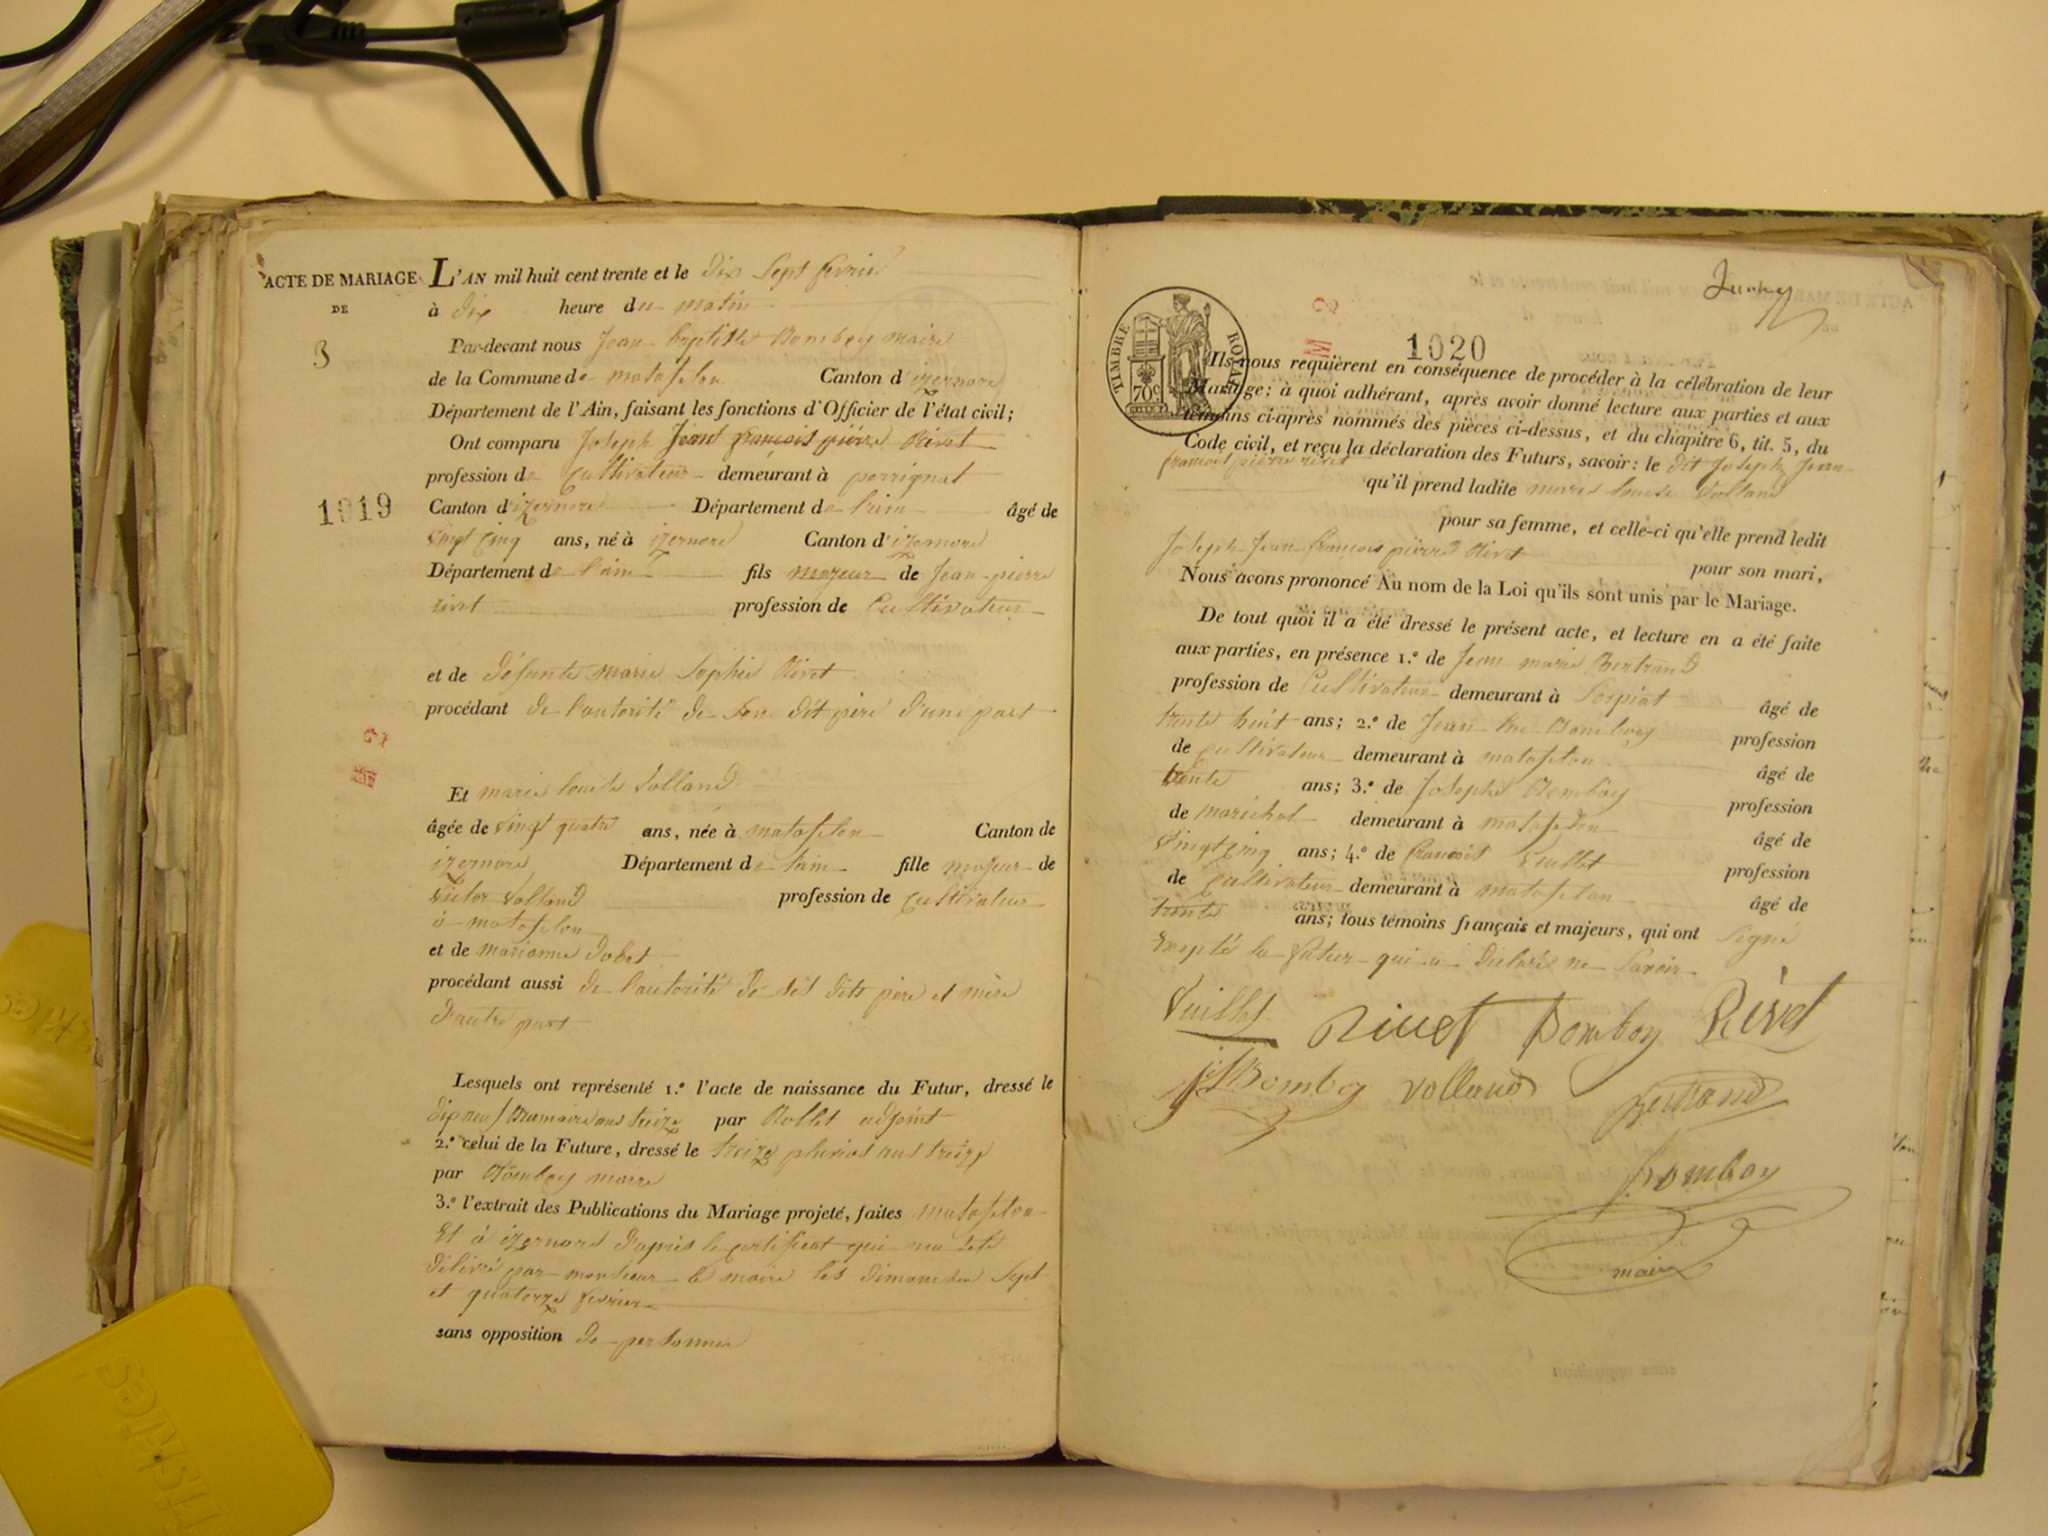 ACTE DE MARIAGE
DE
3
1019
L'AN mil huit cent trente et le dix Sept fevrier
à dix heure du matin
Par-devant nous Jean Baptiste Bomboy maire
de la Commune de matafelon Canton d'izernore
Département de l'Ain, faisant les fonctions d'Officier de l'état civil;
Ont comparu Joseph Jean françois pierre Rivet
profession de Cultivateur demeurant à perrignat
Canton d'izernore Département de l'ain âgé de
vingt cinq ans, né à izernore Canton d'izernore
Département de l'ain fils majeur de Jean-pierre
rivet profession de Cultivateur
et de défunte marie Sophie Rivet
procédant de l'autorité de son dit père d'une part
Et marie louise Volland
âgée de vingt quatre ans, née à matafelon Canton de
izernore Département de l'ain fille majeur de
victor volland profession de cultivateur
à matafelon
et de marianne Jobet
procédant aussi de l'autorité de ses dits père et mère
d'autre part
Lesquels ont représenté 1.º l'acte de naissance du Futur, dressé le
dix neuf Brumaire ans treize par Rollet adjoint
2.º celui de la Future, dressé le treize pluvios ans treize
par Bomboy maire
3.º l'extrait des Publications du Mariage projeté, faites matafelon
Et à izernore d'après le certificat qui ma été
délivré par monsieur le maire les dimanches Sept
et quatorze fevrier
sans opposition de personne
1020
TIMBRE ROYAL
70c
Ils nous requièrent en conséquence de procéder à la célébration de leur
Mariage: à quoi adhérant, après avoir donné lecture aux parties et aux
témoins ci-après nommés des pièces ci-dessus, et du chapitre 6, tit. 5, du
Code civil, et reçu la déclaration des Futurs, savoir: le dit Joseph Jean
françois pierre rivet qu'il prend ladite marie louise Volland
pour sa femme, et celle-ci qu'elle prend ledit
Joseph Jean françois pierre Rivet pour son mari,
Nous avons prononcé Au nom de la Loi qu'ils sont unis par le Mariage.
De tout quoi il a été dressé le présent acte, et lecture en a été faite
aux parties, en présence 1.º de Jean marie Bertrand
profession de Cultivateur demeurant à Corpiat âgé de
trente huit ans; 2.º de Jean Bomboy profession
de cultivateur demeurant à matafelon âgé de
trente ans; 3.º de Joseph Bomboy profession
de marichal demeurant à matafelon âgé de
vingt cinq ans; 4.º de francois Vuillet profession
de Cultivateur demeurant à matafelon âgé de
trente ans; tous témoins français et majeurs, qui ont signé
Excepté la future qui a déclaré ne Savoir
Vuillet Rivet Bomboy Rivet
Bomboy volland Bertrand
Bomboy
maire